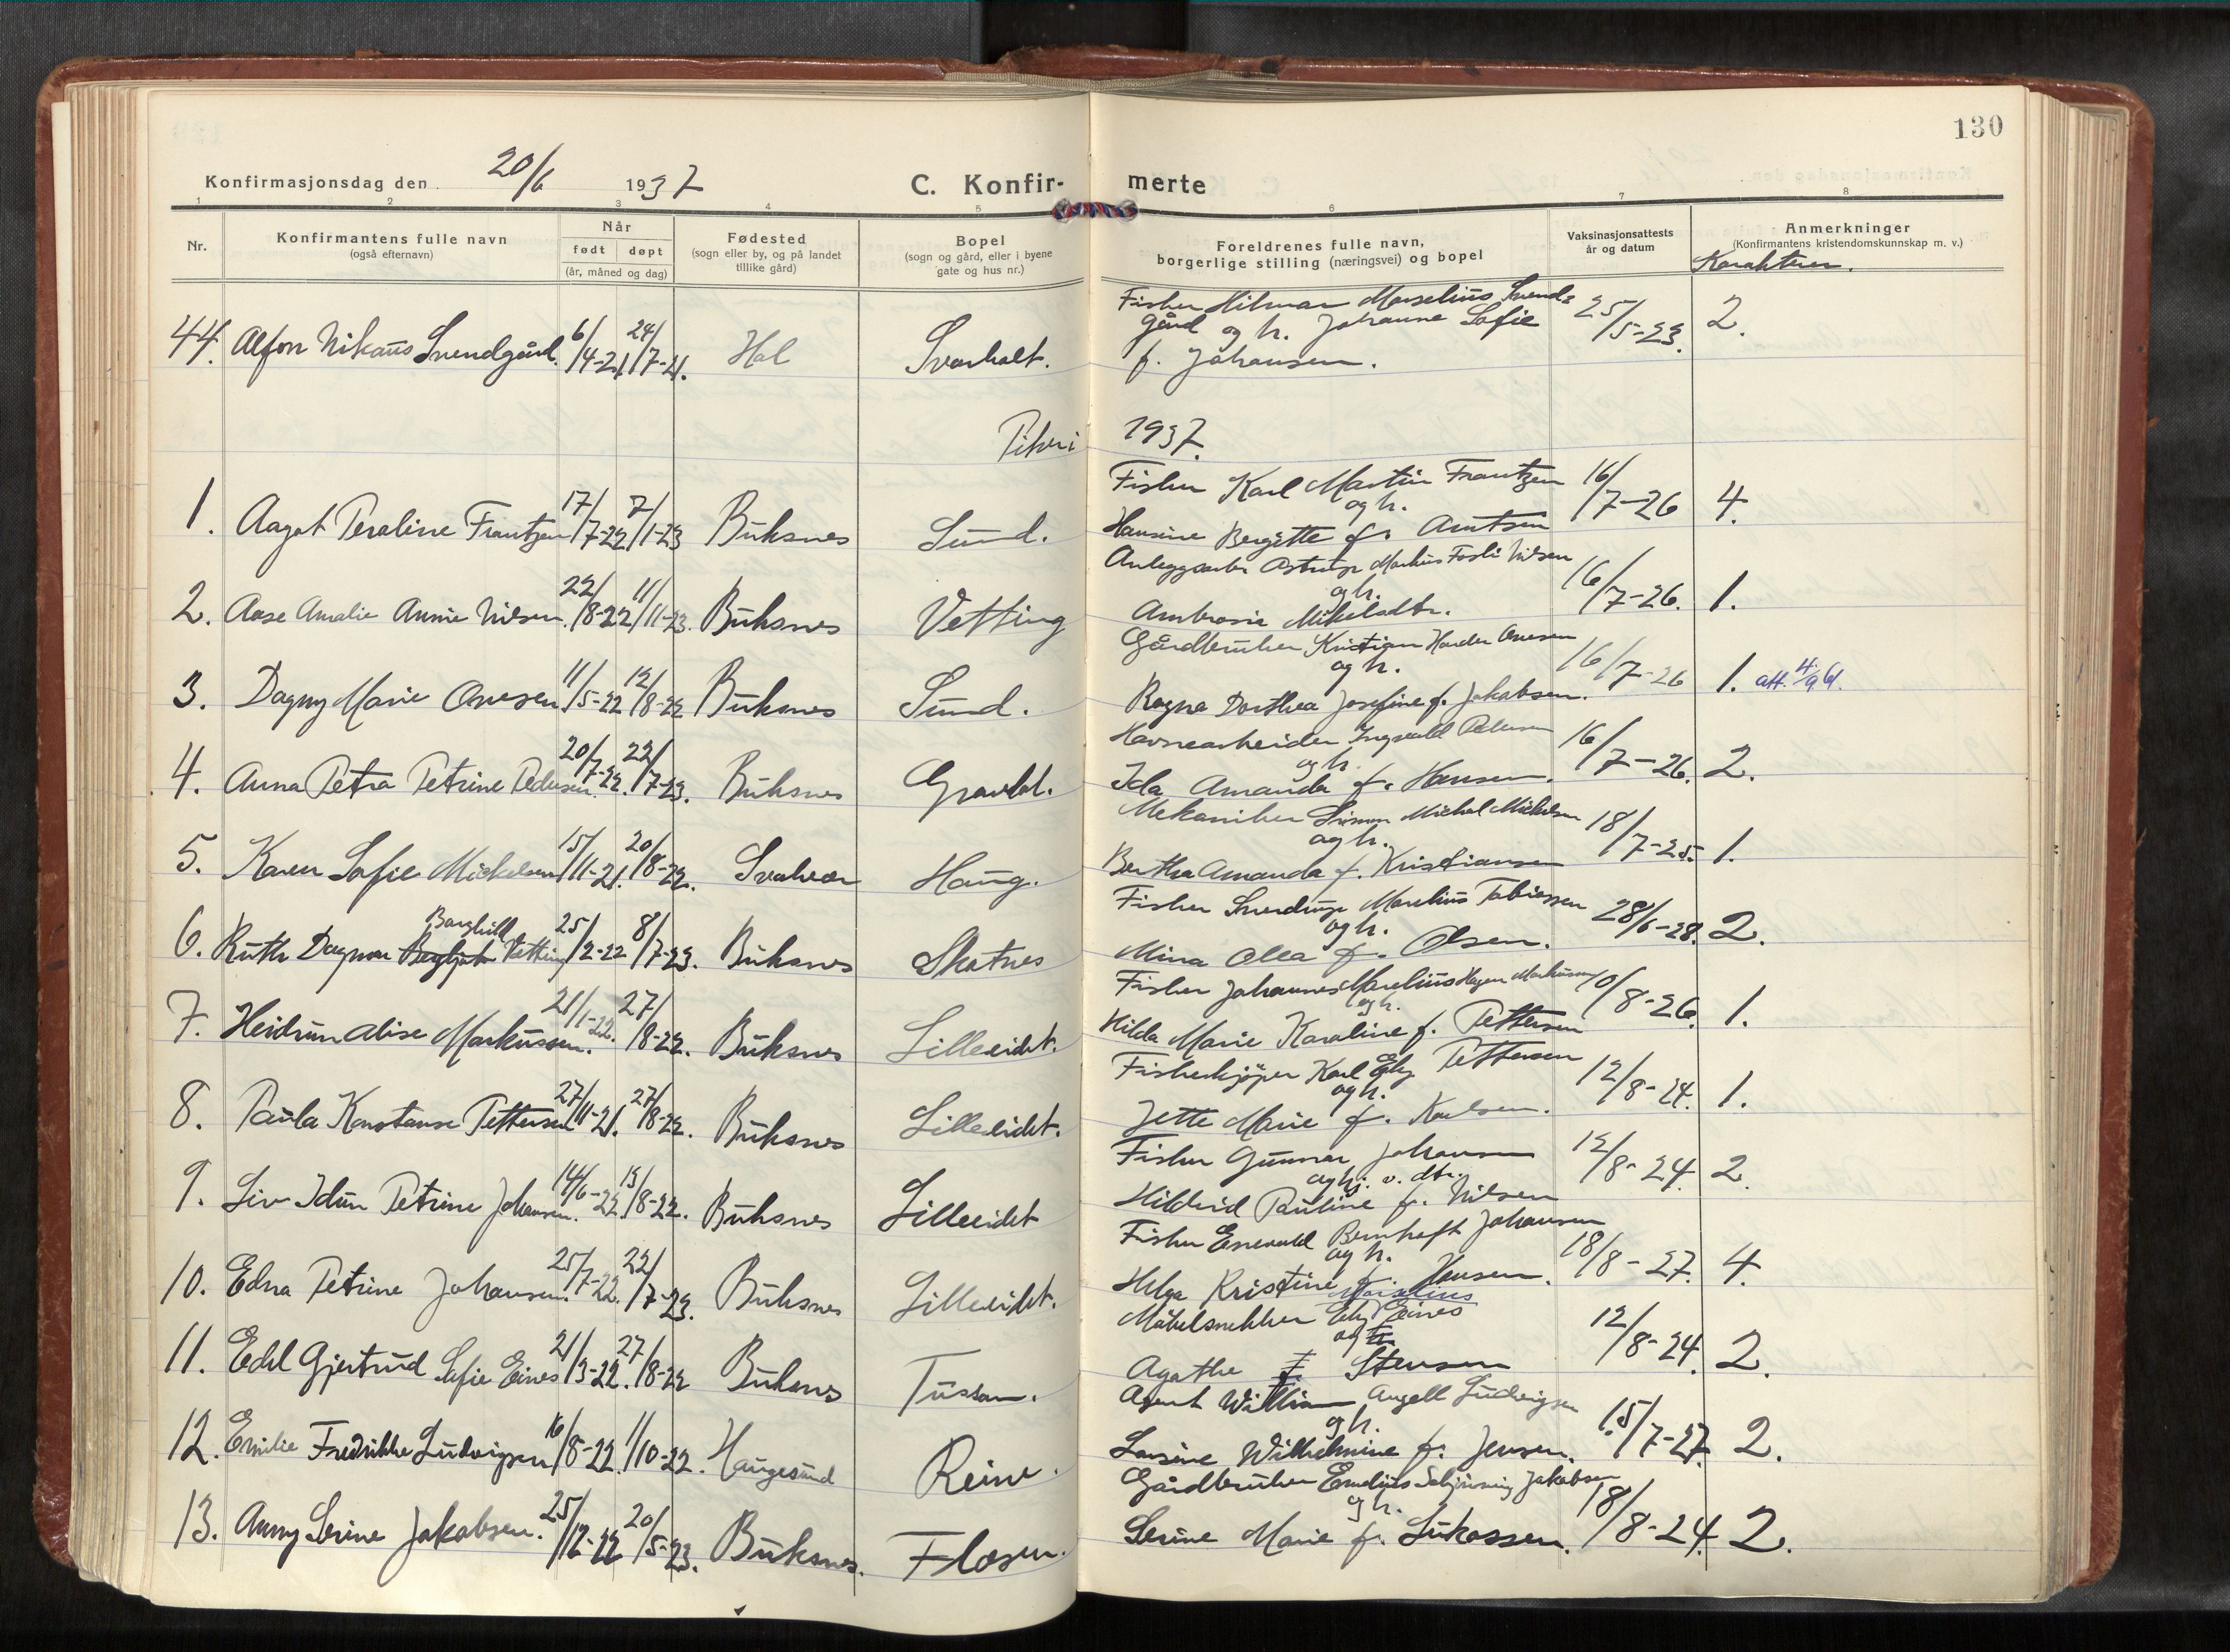 130
Konfirmasjonsdag den 20/6 1937
C. Konfir- merte
1 2 3 4 5 6 7 8
Nr.
Konfirmantens fulle navn
(også efternavn)
Når
født døpt
(år, måned og dag)
Fødested
(sogn eller by, og på landet
tillike gård)
Bopel
(sogn og gård, eller i byene
gate og hus nr.)
Foreldrenes fulle navn,
borgerlige stilling (næringsvei) og bopel
Vaksinasjonsattests
år og datum
Anmerkninger
(Konfirmantens kristendomskunnskap m. v.)
Karakterer.
Fisker Hilmar Marselius Svend=
44. Alfon Nikaus Svendgård. 6/4-21. 24/7-21. Hol Svarholt. gård og h. Johanne Sofie 25/5-23. 2.
f. Johansen.
Piker i 1937.
Fisker Karl Martin Frantzen
og h.
1. Aagot Peraline Frantzen 17/7-22 7/1-23 Buksnes Sund. Hansine Bergitte f. Arntsen 16/7-26 4.
Anleggsarb. Astrup Markus Fosli Nilsen
og h.
2. Aase Amalie Annie Nilsen. 22/8-22 11/11-23. Buksnes Vetting Ambrosia Mikalsdtr. 16/7-26. 1.
Gårdbruker Kristian Harder Onesen
og h.
3. Dagny Marie Onesen 11/5-22 12/8-22 Buksnes Sund. Ragna Dorthea Josefine f. Jakobsen. 16/7-26 1. att. 4/9 61.
Havnearbeider Ingvald Pedersen
og h.
4. Anna Petra Petrine Pedersen. 20/7-22. 22/7-23. Buksnes Gravdal. Ida Amanda f. Hansen. 16/7-26. 2.
Mekaniker Simon Michal Mickelsen
og h.
5. Karen Sofie Mickelsen 15/11-21. 20/8-22. Svolvær Haug. Bertha Amanda f. Kristiansen 18/7-25. 1.
Fisker Sverdrup Marelius Tobiassen
og h.
Borghild
6. Ruth Dagmar Bergljot Vetting 25/2-22 8/7-23. Buksnes Skotnes Mina Olea f. Olsen. 28/6-28. 2.
Fisker Johannes Marelius Hagen Markussen
og h.
7. Heidrun Alise Markussen. 21/1-22. 27/8-22. Buksnes Lilleeidet. Hilda Marie Karoline f. Pettersen 10/8-26. 1.
Fiskekjøper Karl Eby Pettersen
og h.
8. Paula Konstanse Pettersen 27/11-21. 27/8-22. Buksnes Lilleeidet. Jette Marie f. Karlsen. 12/8-24. 1.
Fisker Gunnar Johansen
og h. v. dtr.
9. Liv Idun Petrine Johansen. 14/6-22. 13/8-22. Buksnes Lilleeidet Hildrid Pauline f. Nilsen 12/8-24. 2.
Fisker Enevald Bernhoft Johansen
og h.
10. Edna Petrine Johansen. 25/7-22. 22/7-23. Buksnes Lilleeidet. Helga Kristine f. Hansen. 18/8-27. 4.
Marelius
Møbelsnekker Eby Eines
og
11. Edel Gjertrud Sofie Eines 21/3-22. 27/8-22 Buksnes Tussan. Agathe f. Stensen 12/8-24. 2.
Agent William Angell Ludvigsen
og h.
12. Emilie Fredrikke Ludvigsen 16/8-22. 1/10-22. Haugesund Reine. Larsine Wilhelmine f. Jensen. 15/7-27. 2.
Gårdbruker Emelius Schjønning Jakobsen
og h.
13. Anny Serine Jakobsen. 25/12-22 20/5-23. Buksnes. Flosen. Serine Marie f. Lukassen. 18/8-24. 2.